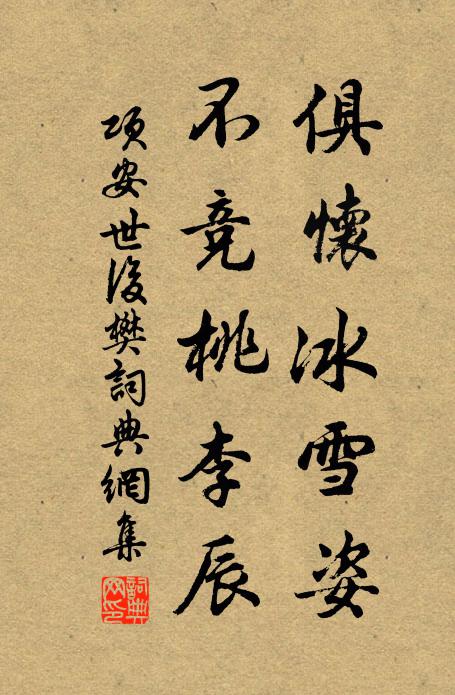 俱懷冰雪姿
不竞桃李辰
項安世後樊詞典網集
詞典网印